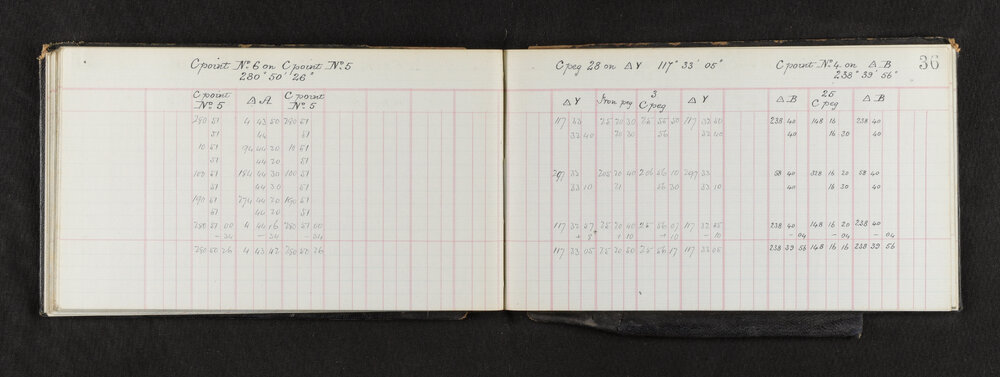 C point No. 6 on C point No. 5
280° 50' 26"
C point No. 5 Δ A C point No. 5
280 51 4 43 50 280 51
51 44 51
10 51 94 44 20 10 51
51 44 20 51
100 51 184 44 30 100 51
51 44 30 51
190 51 274 44 20 190 51
51 44 20 51
280 51 00 4 44 16 280 51 00
- 34 - 34 - 34
280 50 26 4 43 42 280 50 26
36
C peg 28 on Δ Y 117° 33' 05"
Δ Y Iron peg 3 C peg Δ Y
117 33 25 20 30 25 55 50 117 32 50
32 40 20 30 56 32 40
297 33 205 20 40 205 56 10 297 33
33 10 21 56 30 33 10
117 32 57 25 20 40 25 56 07 117 32 55
+ 8 + 10 + 10 + 10
117 33 05 25 20 50 25 56 17 117 33 05
C point No. 4 on Δ B
238° 39' 56"
Δ B 25 C peg Δ B
238 40 148 16 238 40
40 16 20 40
58 40 328 16 20 58 40
40 16 30 40
238 40 148 16 20 238 40
- 04 - 04 - 04
238 39 56 148 16 16 238 39 56